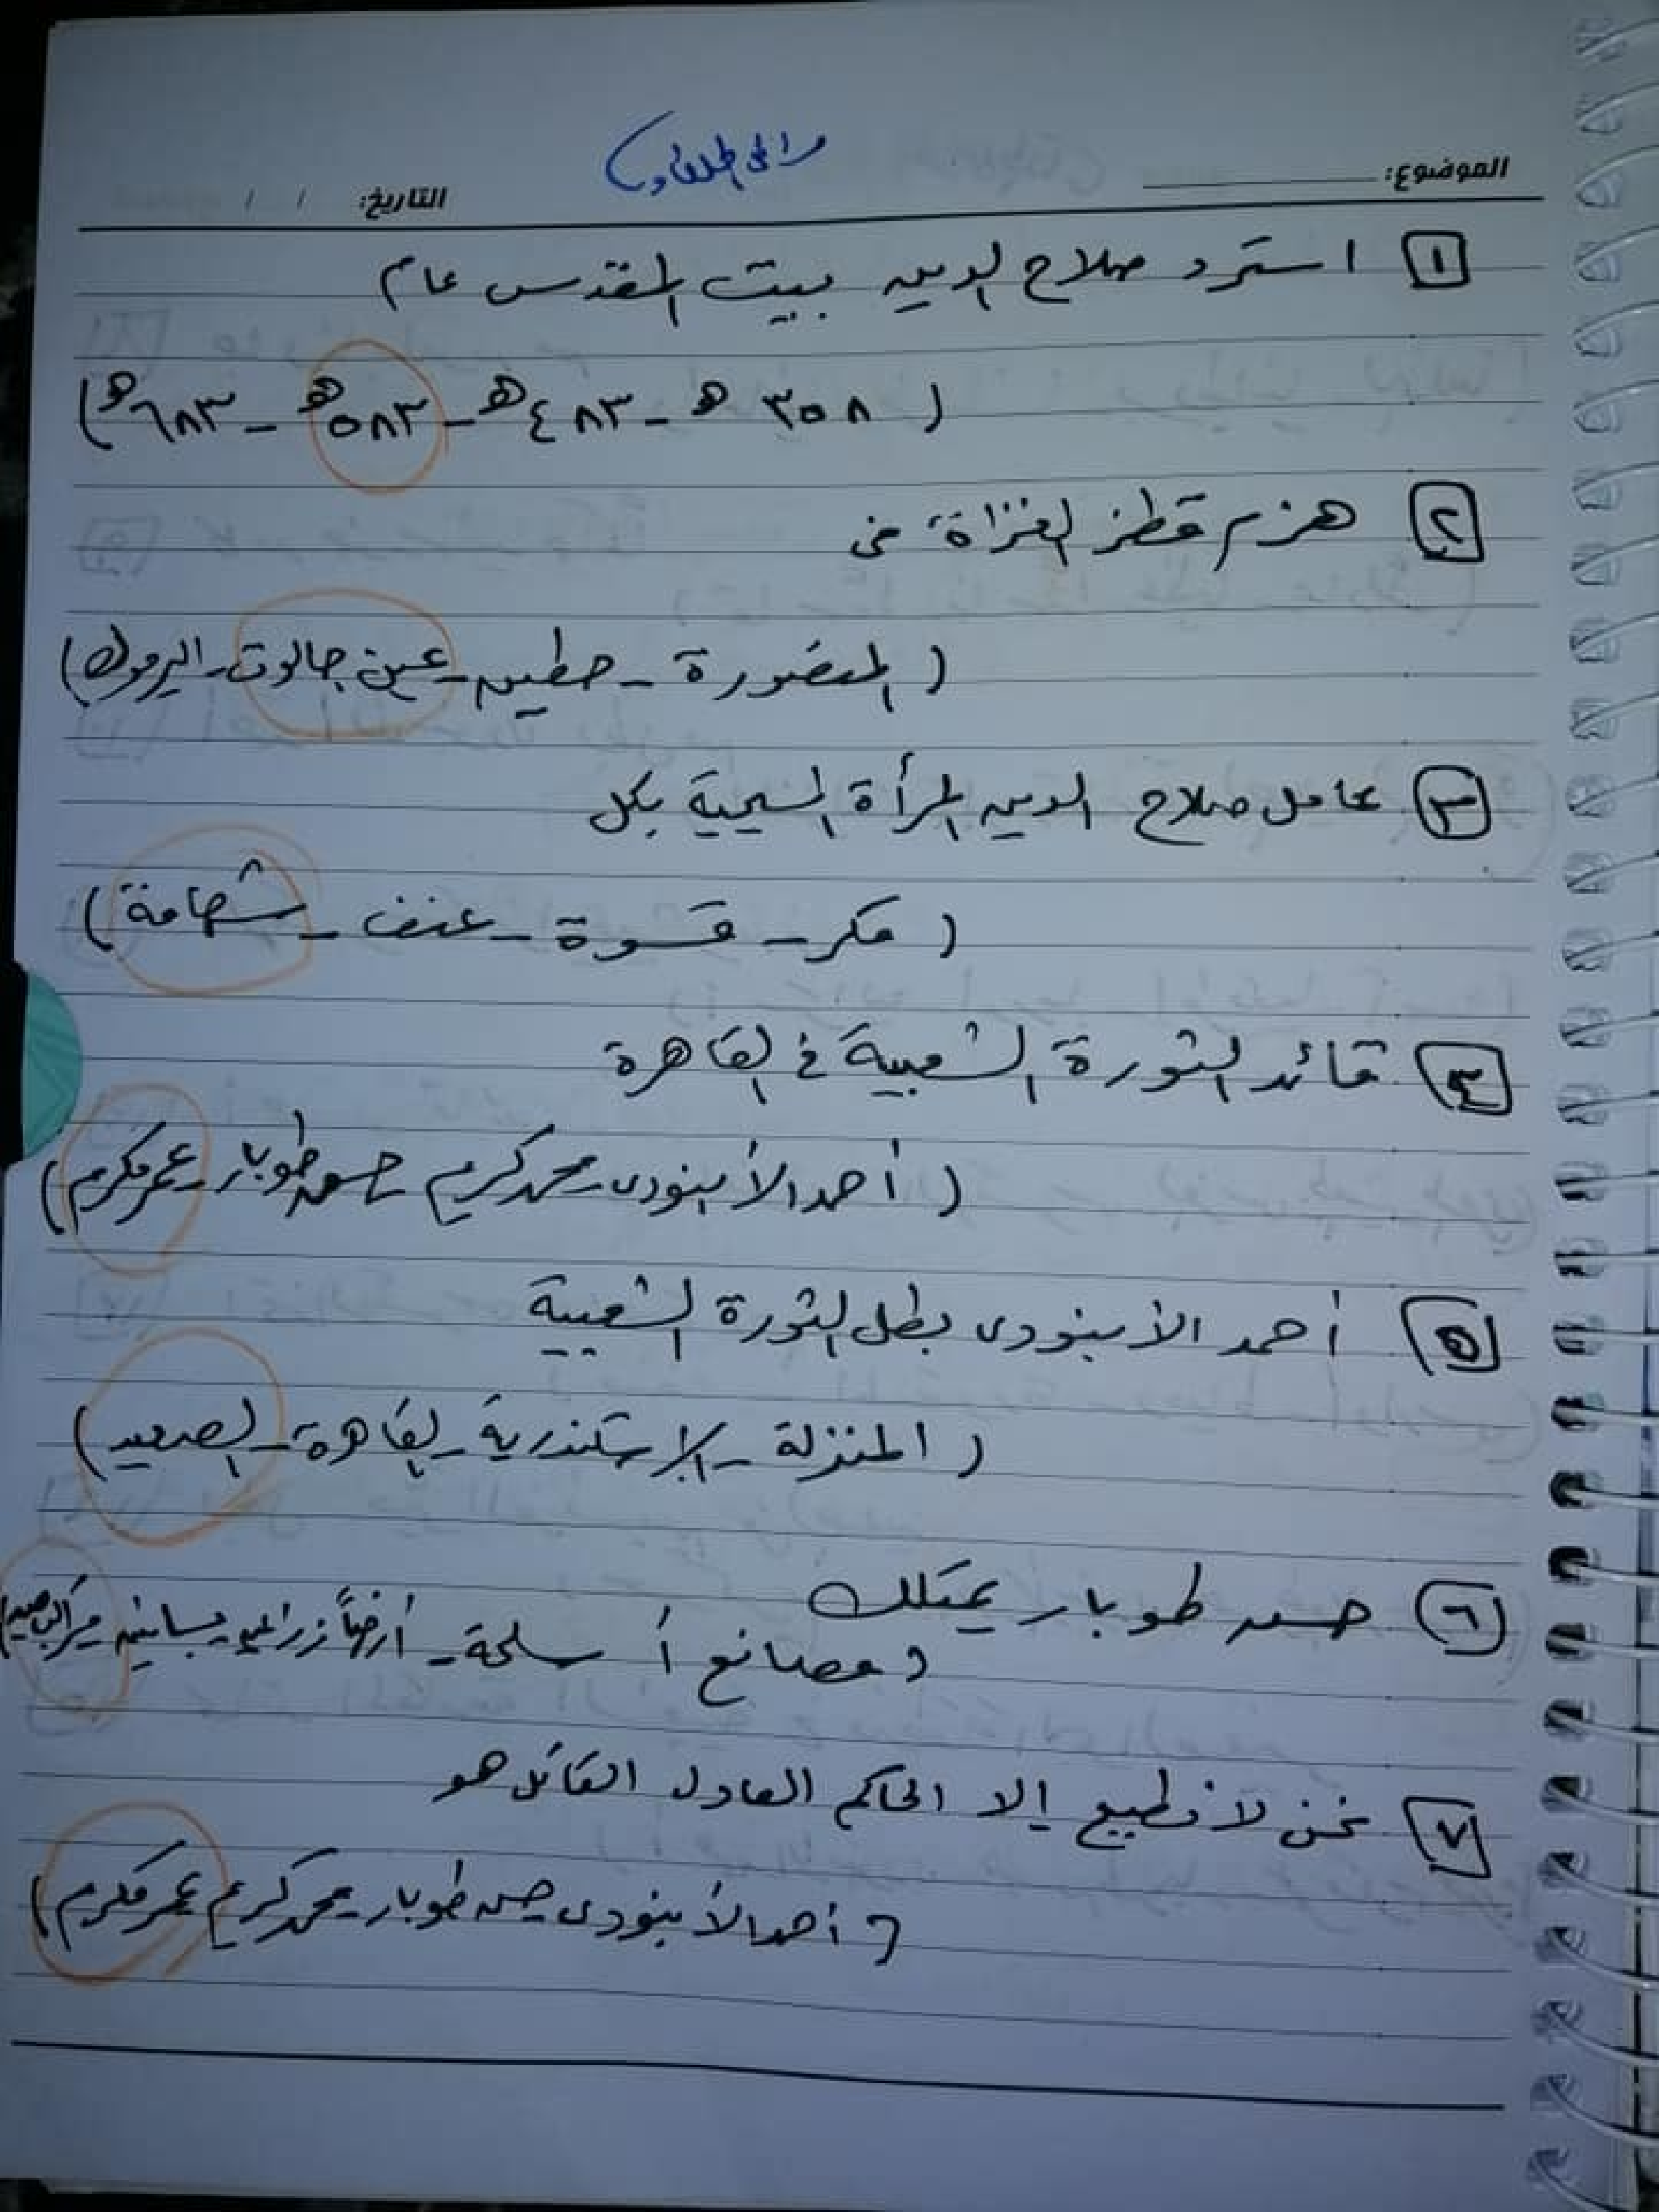 الموضوع:
التاريخ: / /
١ استرد صلاح الدين بيت المقدس عام
( ٣٥٨ هـ - ٤٨٣ هـ - ٥٨٣ هـ - ٦٨٣ هـ )
٢ هزم قطز الغزاة فى
( المنصورة - حطين - عين جالوت - اليرموك )
٣ عامل صلاح الدين المرأة المسيحية بكل
( مكر - قسوة - عنف - شهامة )
٤ قائد الثورة الشعبية فى القاهرة
( أحمد الأبنودى - محمد كريم - حسن طوبار - عمر مكرم )
٥ أحمد الأبنودى بطل الثورة الشعبية
( المنزلة - الإسكندرية - القاهرة - الصعيد )
٦ حسن طوبار يمتلك
( مصانع أسلحة - أرضاً زراعية - بساتين
٧ نحن لا نطيع إلا الحاكم العادل القائل هو
( أحمد الأبنودى - حسن طوبار - محمد كريم - عمر مكرم )